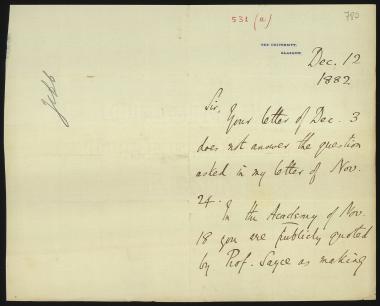 531 (a)
780
THE UNIVERSITY,
GLASGOW.
Dec. 12
1882
Jebb
Sir,
Your letter of Dec. 3
does not answer the question
asked in my letter of Nov.
24.
In the Academy of Nov.
18 you are publicly quoted
by Prof. Sayce as making